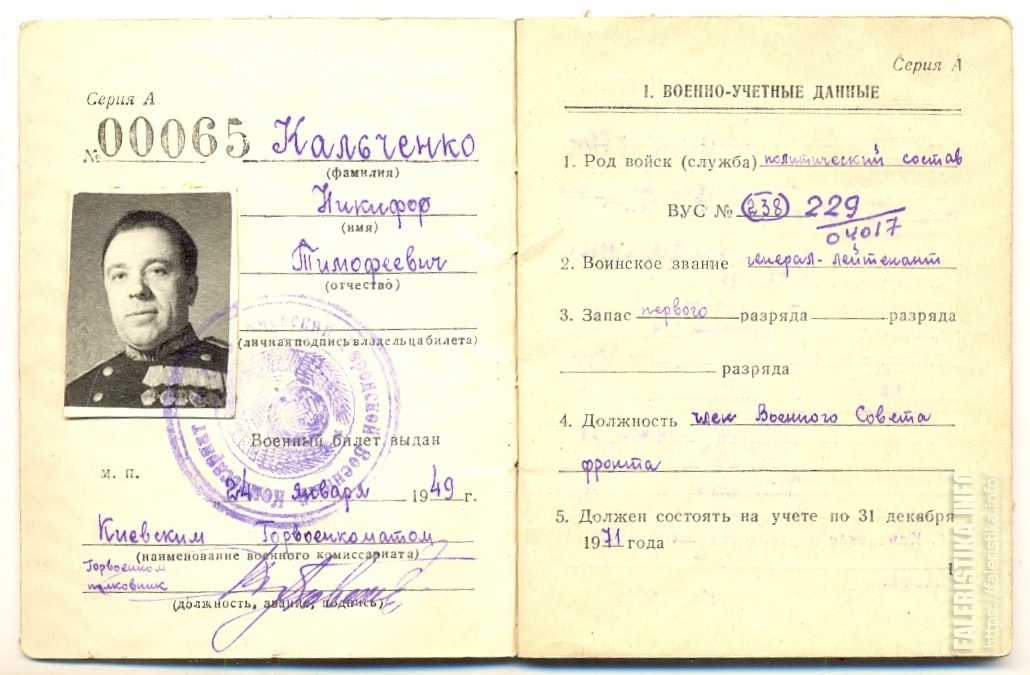 Серия А
№ 00065 Кальченко
(фамилия)
Никифор
(имя)
Тимофеевич
(отчество)
(личная подпись владельца билета)
Военный билет выдан
м. п.
24 января 1949 г.
Киевским Горвоенкоматом
(наименование военного комиссариата)
Горвоенком
полковник
(должность, звание, подпись)
Серия А
I. ВОЕННО-УЧЕТНЫЕ ДАННЫЕ
1. Род войск (служба) политический состав
ВУС № 238 229
04017
2. Воинское звание генерал-лейтенант
3. Запас первого разряда разряда
разряда
4. Должность член Военного Совета
фронта
5. Должен состоять на учете по 31 декабря
1971 года
1
FALERISTIKA.INFO
https://faleristika.info